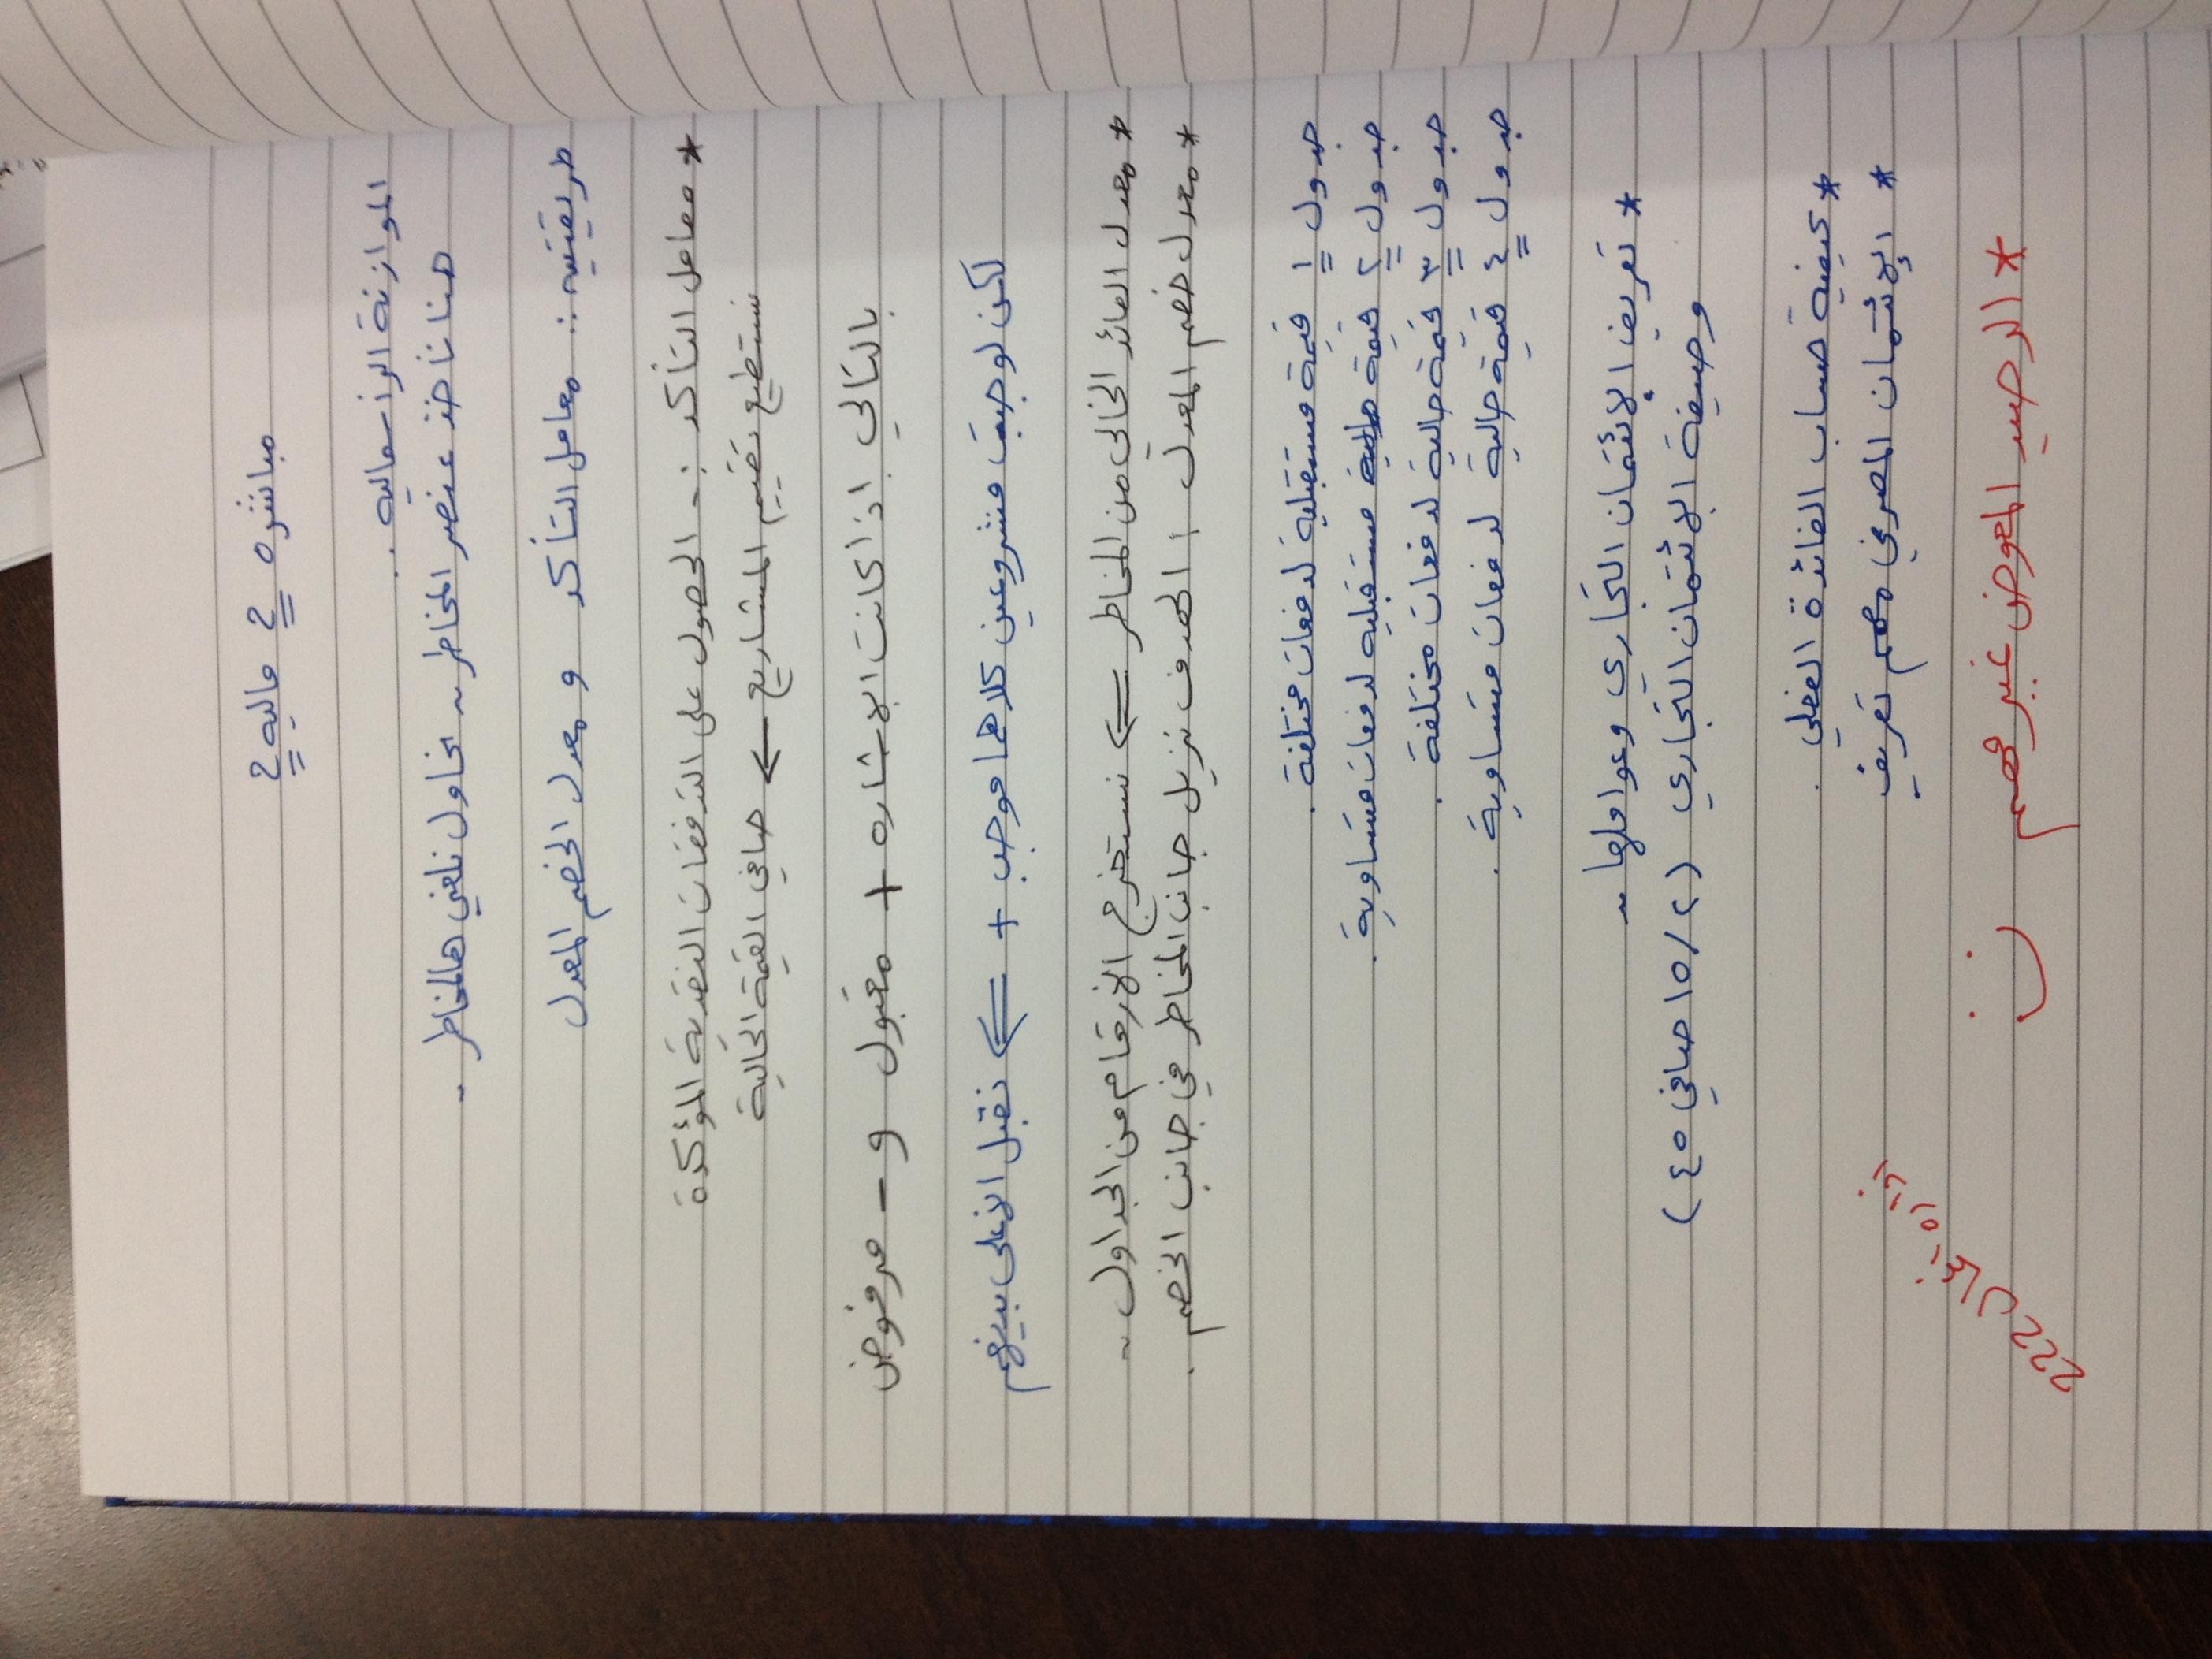 مباشره 2 ماليه 2
الموازنة الرأسماليه .
هنا نأخذ عنصر المخاطر .. نحاول نلغي هالمخاطر ..
طريقتين :: معامل التأكد و معدل الخصم المعدل
* معامل التأكد :- الحصول على التدفقات النقدية المؤكدة
نستطيع تقييم المشاريع ← صافي القيمة الحالية
بالتالي اذا كانت الاشاره + مقبول و - مرفوض
لكن لو جبت مشروعين كلاهما موجب + ⇐ نقبل الاعلى بينهم
* معدل العائد الخالي من المخاطر ⇐ نستخرج الارقام من الجداول ..
* معدل خضم المعدل ، الهدف تنزيل جانب المخاطر في جانب الخصم .
جدول 1 قيمة مستقبلية لدفعات مختلفة .
جدول ٢ قيمة مستقبليه لدفعات متساوية .
جدول ٣ قيمة حالية لدفعات مختلفة .
جدول ٤ قيمة حالية لدفعات متساوية .
* تعريف الإئتمان التجاري وعواملها ..
وصيغة الإئتمان التجاري ( ٢ / ١٥ صافي ٤٥ )
* كيفية حساب الفائدة الفعلي .
* الإئتمان المصرفي مهم تعريف .
* الرصيد المعوض غير مهم